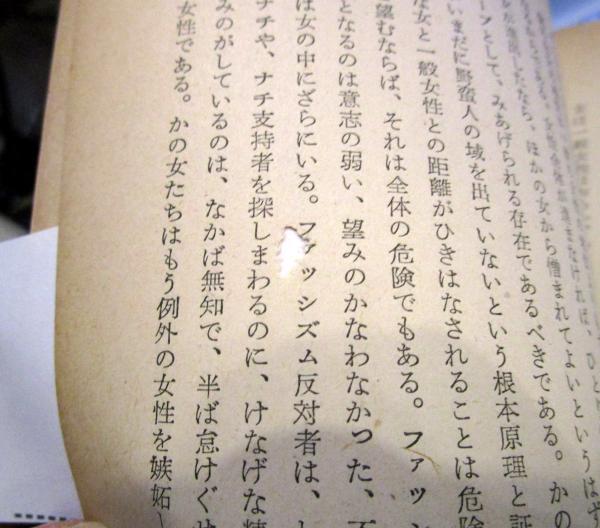 ひと
ければ、ひと
なら、ほかの女から憎まれてよいというはず
ープとして、みあげられる存在であるべきである。かの
いまだに野蛮人の域を出ていないという根本原理と証
な女と一般女性との距離がひきはなされることは危険
望むならば、それは全体の危険でもある。ファッシ
となるのは意志の弱い、望みのかなわなかった、不
は女の中にざらにいる。ファッシズム反対者は、
ナチや、ナチ支持者を探しまわるのに、けなげな精
みのがしているのは、なかば無知で、半ば怠けぐせ
女性である。かの女たちはもう例外の女性を嫉妬し